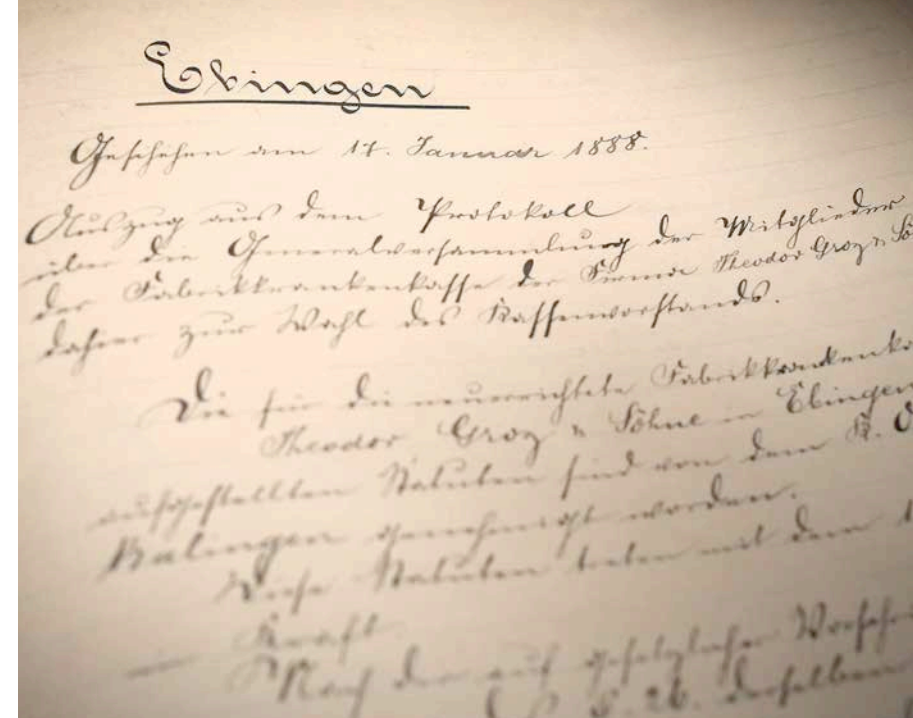 Ebingen
Geschehen am 17. Januar 1888.
Auszug aus dem Protokoll
über die Generalversammlung der Mitglieder
der Fabrikkrankenkasse der Firma Theodor Groz & Sö
daher zur Wahl des Kassenvorstands.
Die für die neuerrichtete Fabrikkrankenka
Theodor Groz & Söhne in Ebingen
aufgestellten Statuten sind von dem K. O
Balingen genehmigt worden.
Diese Statuten treten mit dem 1
in Kraft.
Nach der auf gesetzlicher Vorschri
des §. 26. derselben